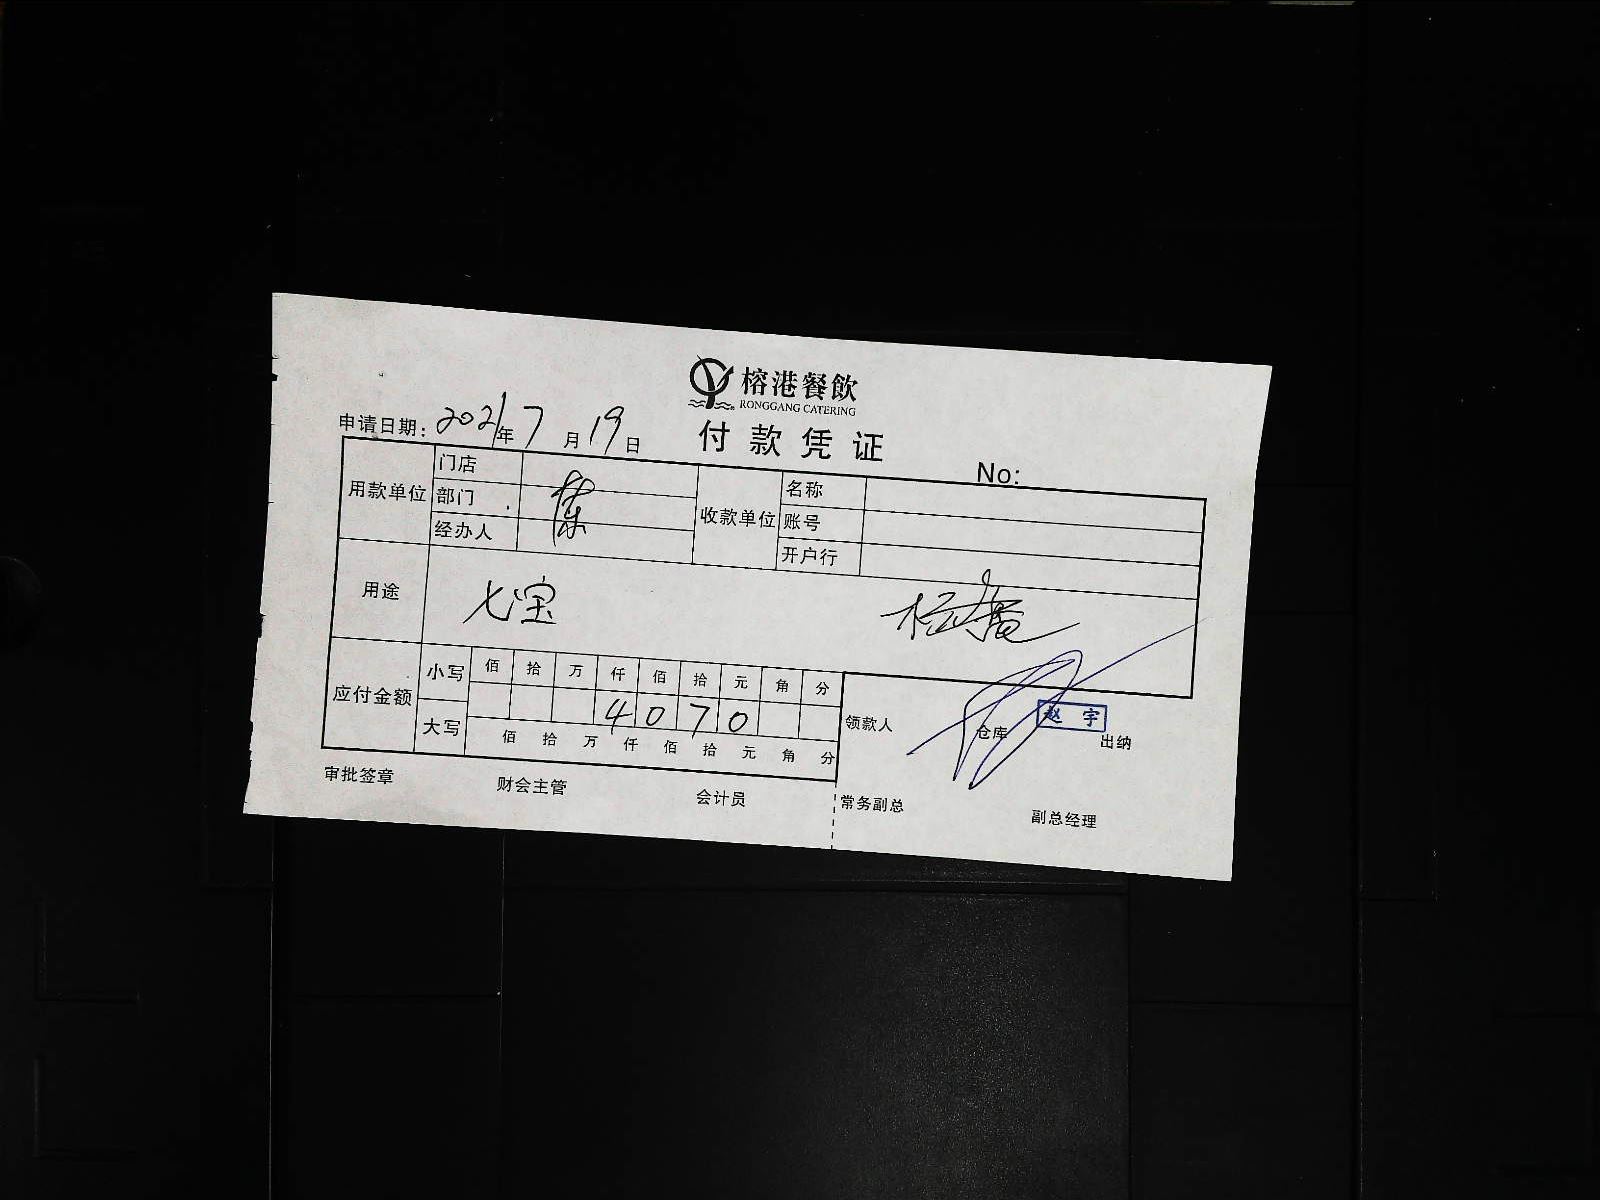 榕港餐飲
RONGGANG CATERING
申请日期: 2021年7月19日
付款凭证
No:
用款单位 门店 收款单位 名称
部门 账号
经办人 开户行
用途 七宝
应付金额 小写 佰 拾 万 仟 佰 拾 元 角 分
4 0 7 0
大写 佰 拾 万 仟 佰 拾 元 角 分
领款人 仓库 赵宇 出纳
审批签章 财会主管 会计员 常务副总 副总经理